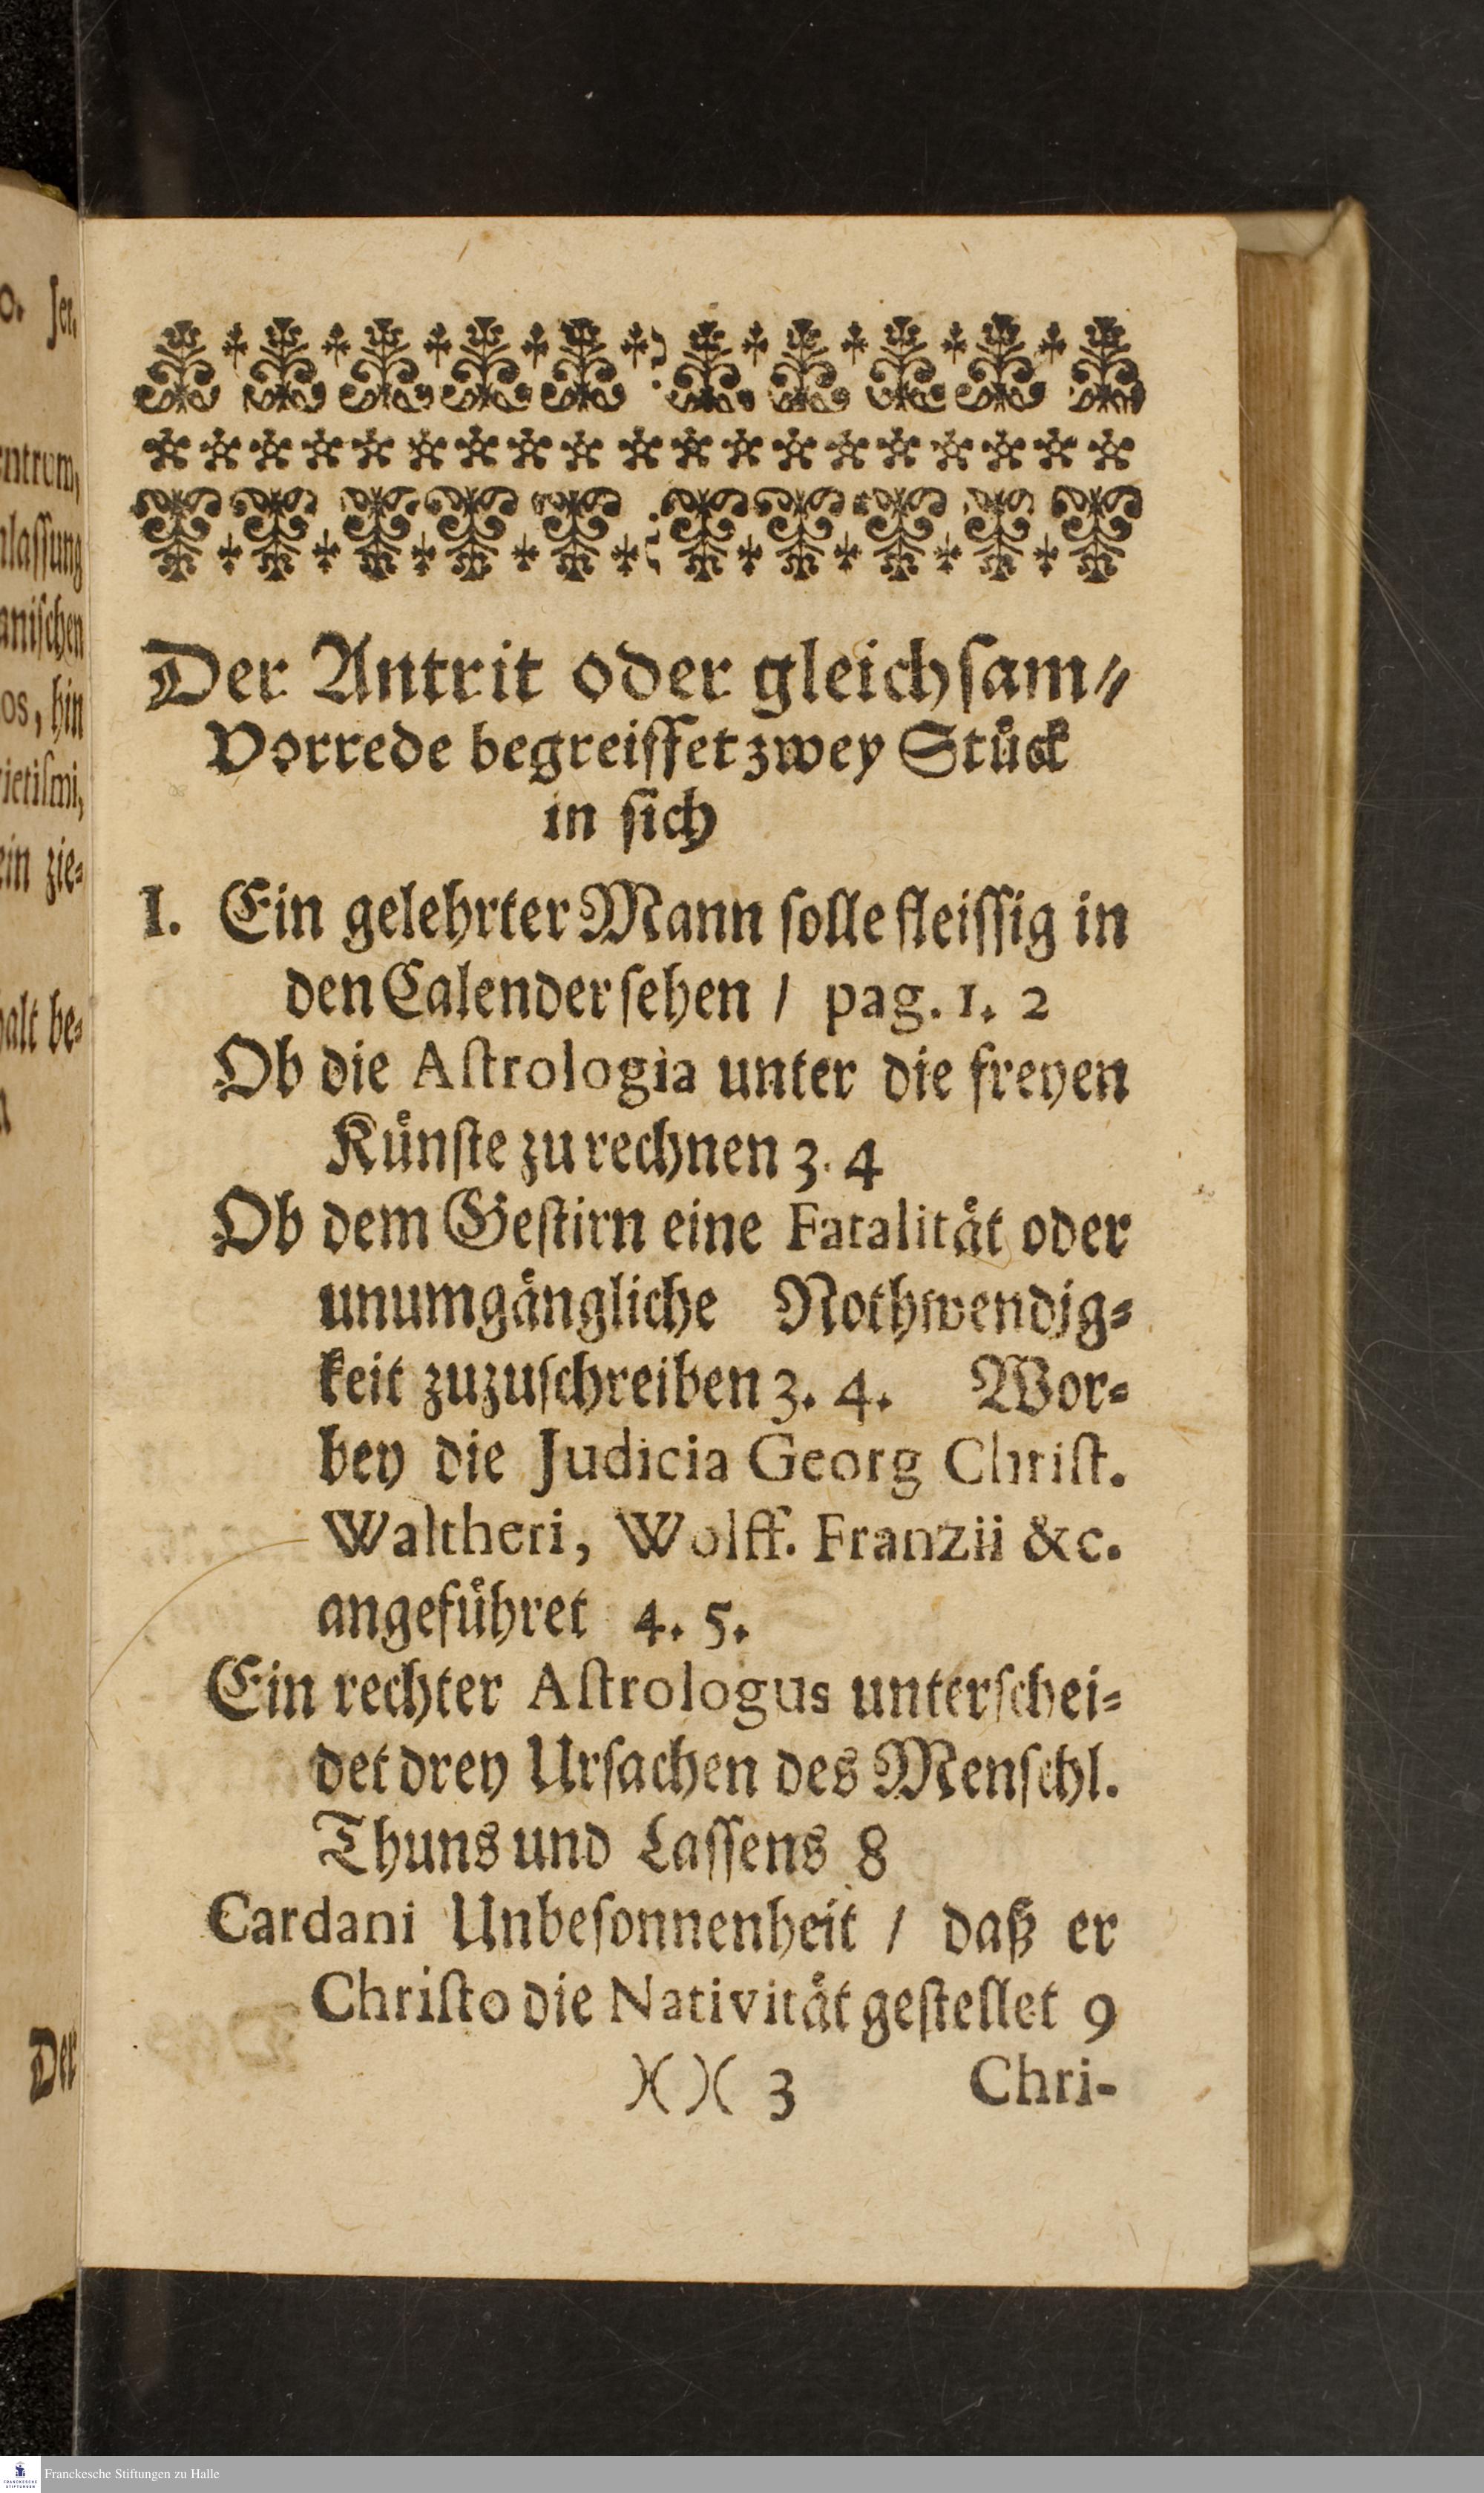 Der Antrit oder gleichsam⸗
Vorrede begreiffet zwey Stuͤck
in sich
I. Ein gelehrter Mann solle fleissig in
den Calender sehen / pag. 1. 2
Ob die Astrologia unter die freyen
Kuͤnste zu rechnen 3. 4
Ob dem Gestirn eine Fatalitaͤt oder
unumgaͤngliche Nothwendig⸗
keit zuzuschreiben 3. 4. Wor⸗
bey die Judicia Georg Christ.
Waltheri, Wolff. Franzii &c.
angefuͤhret 4. 5.
Ein rechter Astrologus unterschei⸗
det drey Ursachen des Menschl.
Thuns und Lassens 8
Cardani Unbesonnenheit / daß er
Christo die Nativitaͤt gestellet 9
)( )( 3 Chri-
o. Jer.
ntrum,
lassung
anischen
os, hin
ietismi,
ein zie⸗
halt be⸗
Der
Franckesche Stiftungen zu Halle